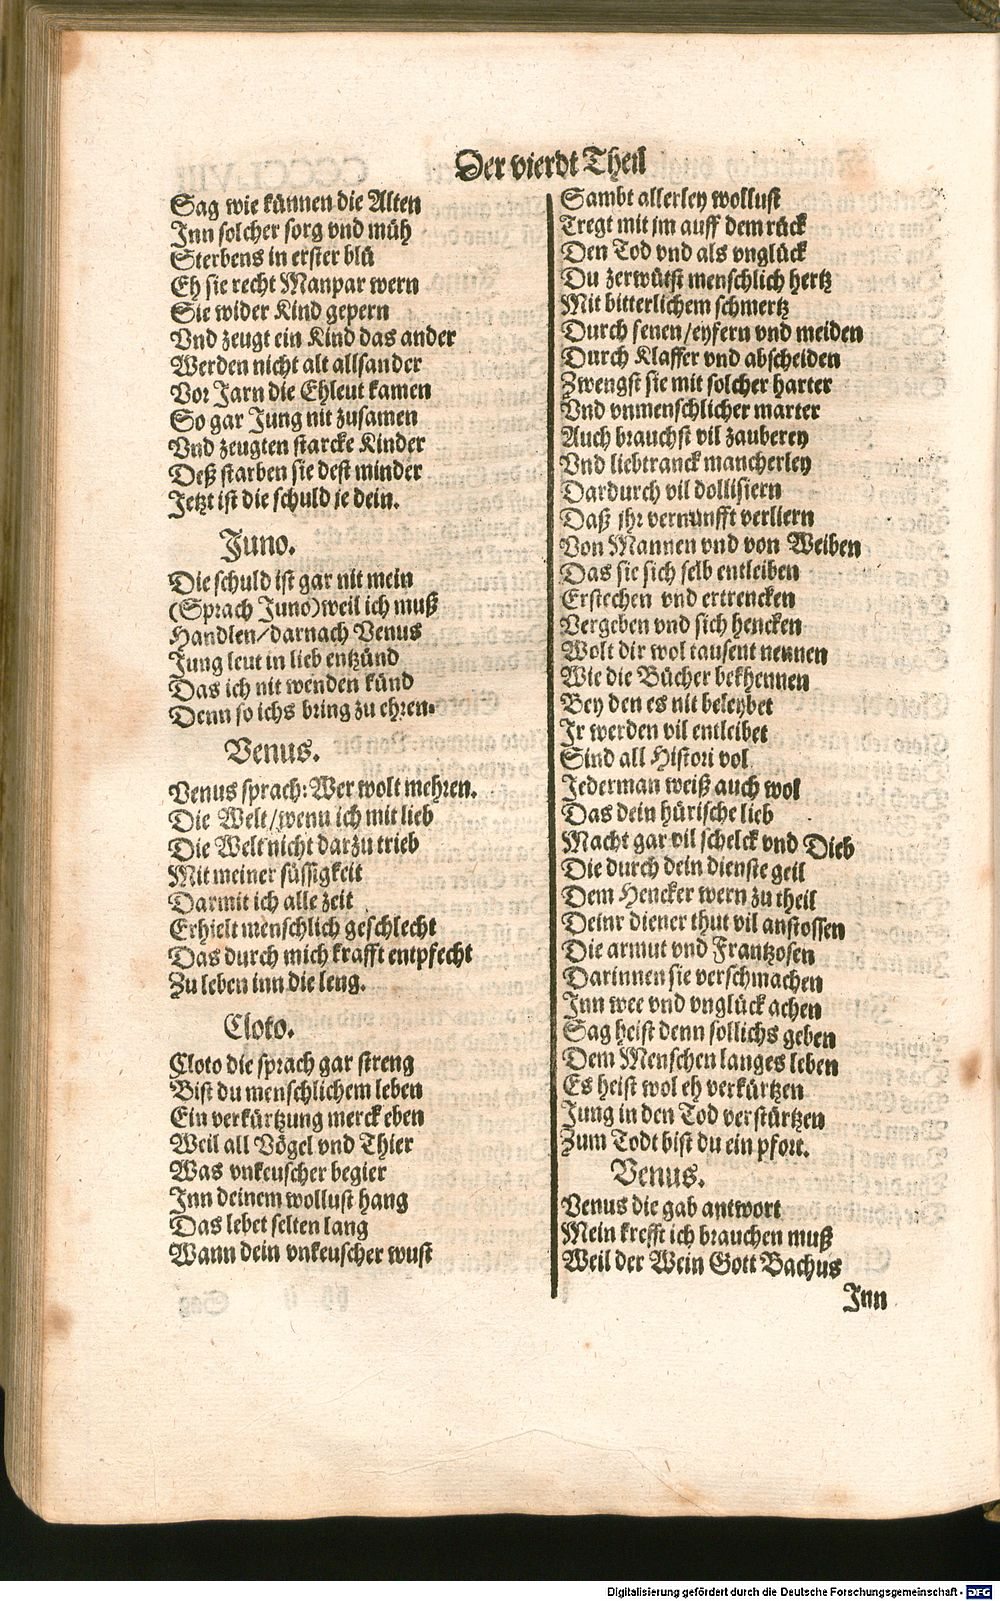 Der vierdt Theil
Sag wie künnen die Alten
Inn solcher sorg vnd müh
Sterbens in erster blü
Eh sie recht Manpar wern
Sie wider Kind gepern
Vnd zeugt ein Kind das ander
Werden nicht alt allsander
Vor Jarn die Ehleut kamen
So gar Jung nit zusamen
Vnd zeugten starcke Kinder
Deß starben sie dest minder
Jetzt ist die schuld je dein.
Juno.
Die schuld ist gar nit mein
(Sprach Juno) weil ich muß
Handlen/darnach Venus
Jung leut in lieb entzünd
Das ich nit wenden künd
Denn so ichs bring zu ehren.
Venus.
Venus sprach: Wer wolt mehren.
Die Welt/wenn ich mit lieb
Die Welt nicht darzu trieb
Mit meiner süssigkeit
Darmit ich alle zeit
Erhielt menschlich geschlecht
Das durch mich krafft entpfecht
Zu leben inn die leng.
Cloto.
Cloto die sprach gar streng
Bist du menschlichem leben
Ein verkürtzung merck eben
Weil all Vögel vnd Thier
Was vnkeuscher begier
Inn deinem wollust hang
Das lebet selten lang
Wann dein vnkeuscher wust
Sambt allerley wollust
Tregt mit jm auff dem rück
Den Tod vnd als vnglück
Du zerwütst menschlich hertz
Mit bitterlichem schmertz
Durch senen/eyfern vnd meiden
Durch Klaffer vnd abscheiden
Zwengst sie mit solcher harter
Vnd vnmenschlicher marter
Auch brauchst vil zauberey
Vnd liebtranck mancherley
Dardurch vil dollisiern
Daß jhr vernunfft verliern
Von Mannen vnd von Weiben
Das sie sich selb entleiben
Erstechen vnd ertrencken
Vergeben vnd sich hencken
Wolt dir wol tausent nennen
Wie die Bücher bekhennen
Bey den es nit beleybet
Ir werden vil entleibet
Sind all Histori vol
Jederman weiß auch wol
Das dein hürische lieb
Macht gar vil schelck vnd Dieb
Die durch dein dienste geil
Dem Hencker wern zu theil
Deinr diener thut vil anstossen
Die armut vnd Frantzosen
Darinnen sie verschmachen
Inn wee vnd vnglück achen
Sag heist denn sollichs geben
Dem Menschen langes leben
Es heist wol eh verkürtzen
Jung in den Tod verstürtzen
Zum Todt bist du ein pfort.
Venus.
Venus die gab antwort
Mein krefft ich brauchen muß
Weil der Wein Gott Bachus
Inn
Digitalisierung gefördert durch die Deutsche Forschungsgemeinschaft - DFG